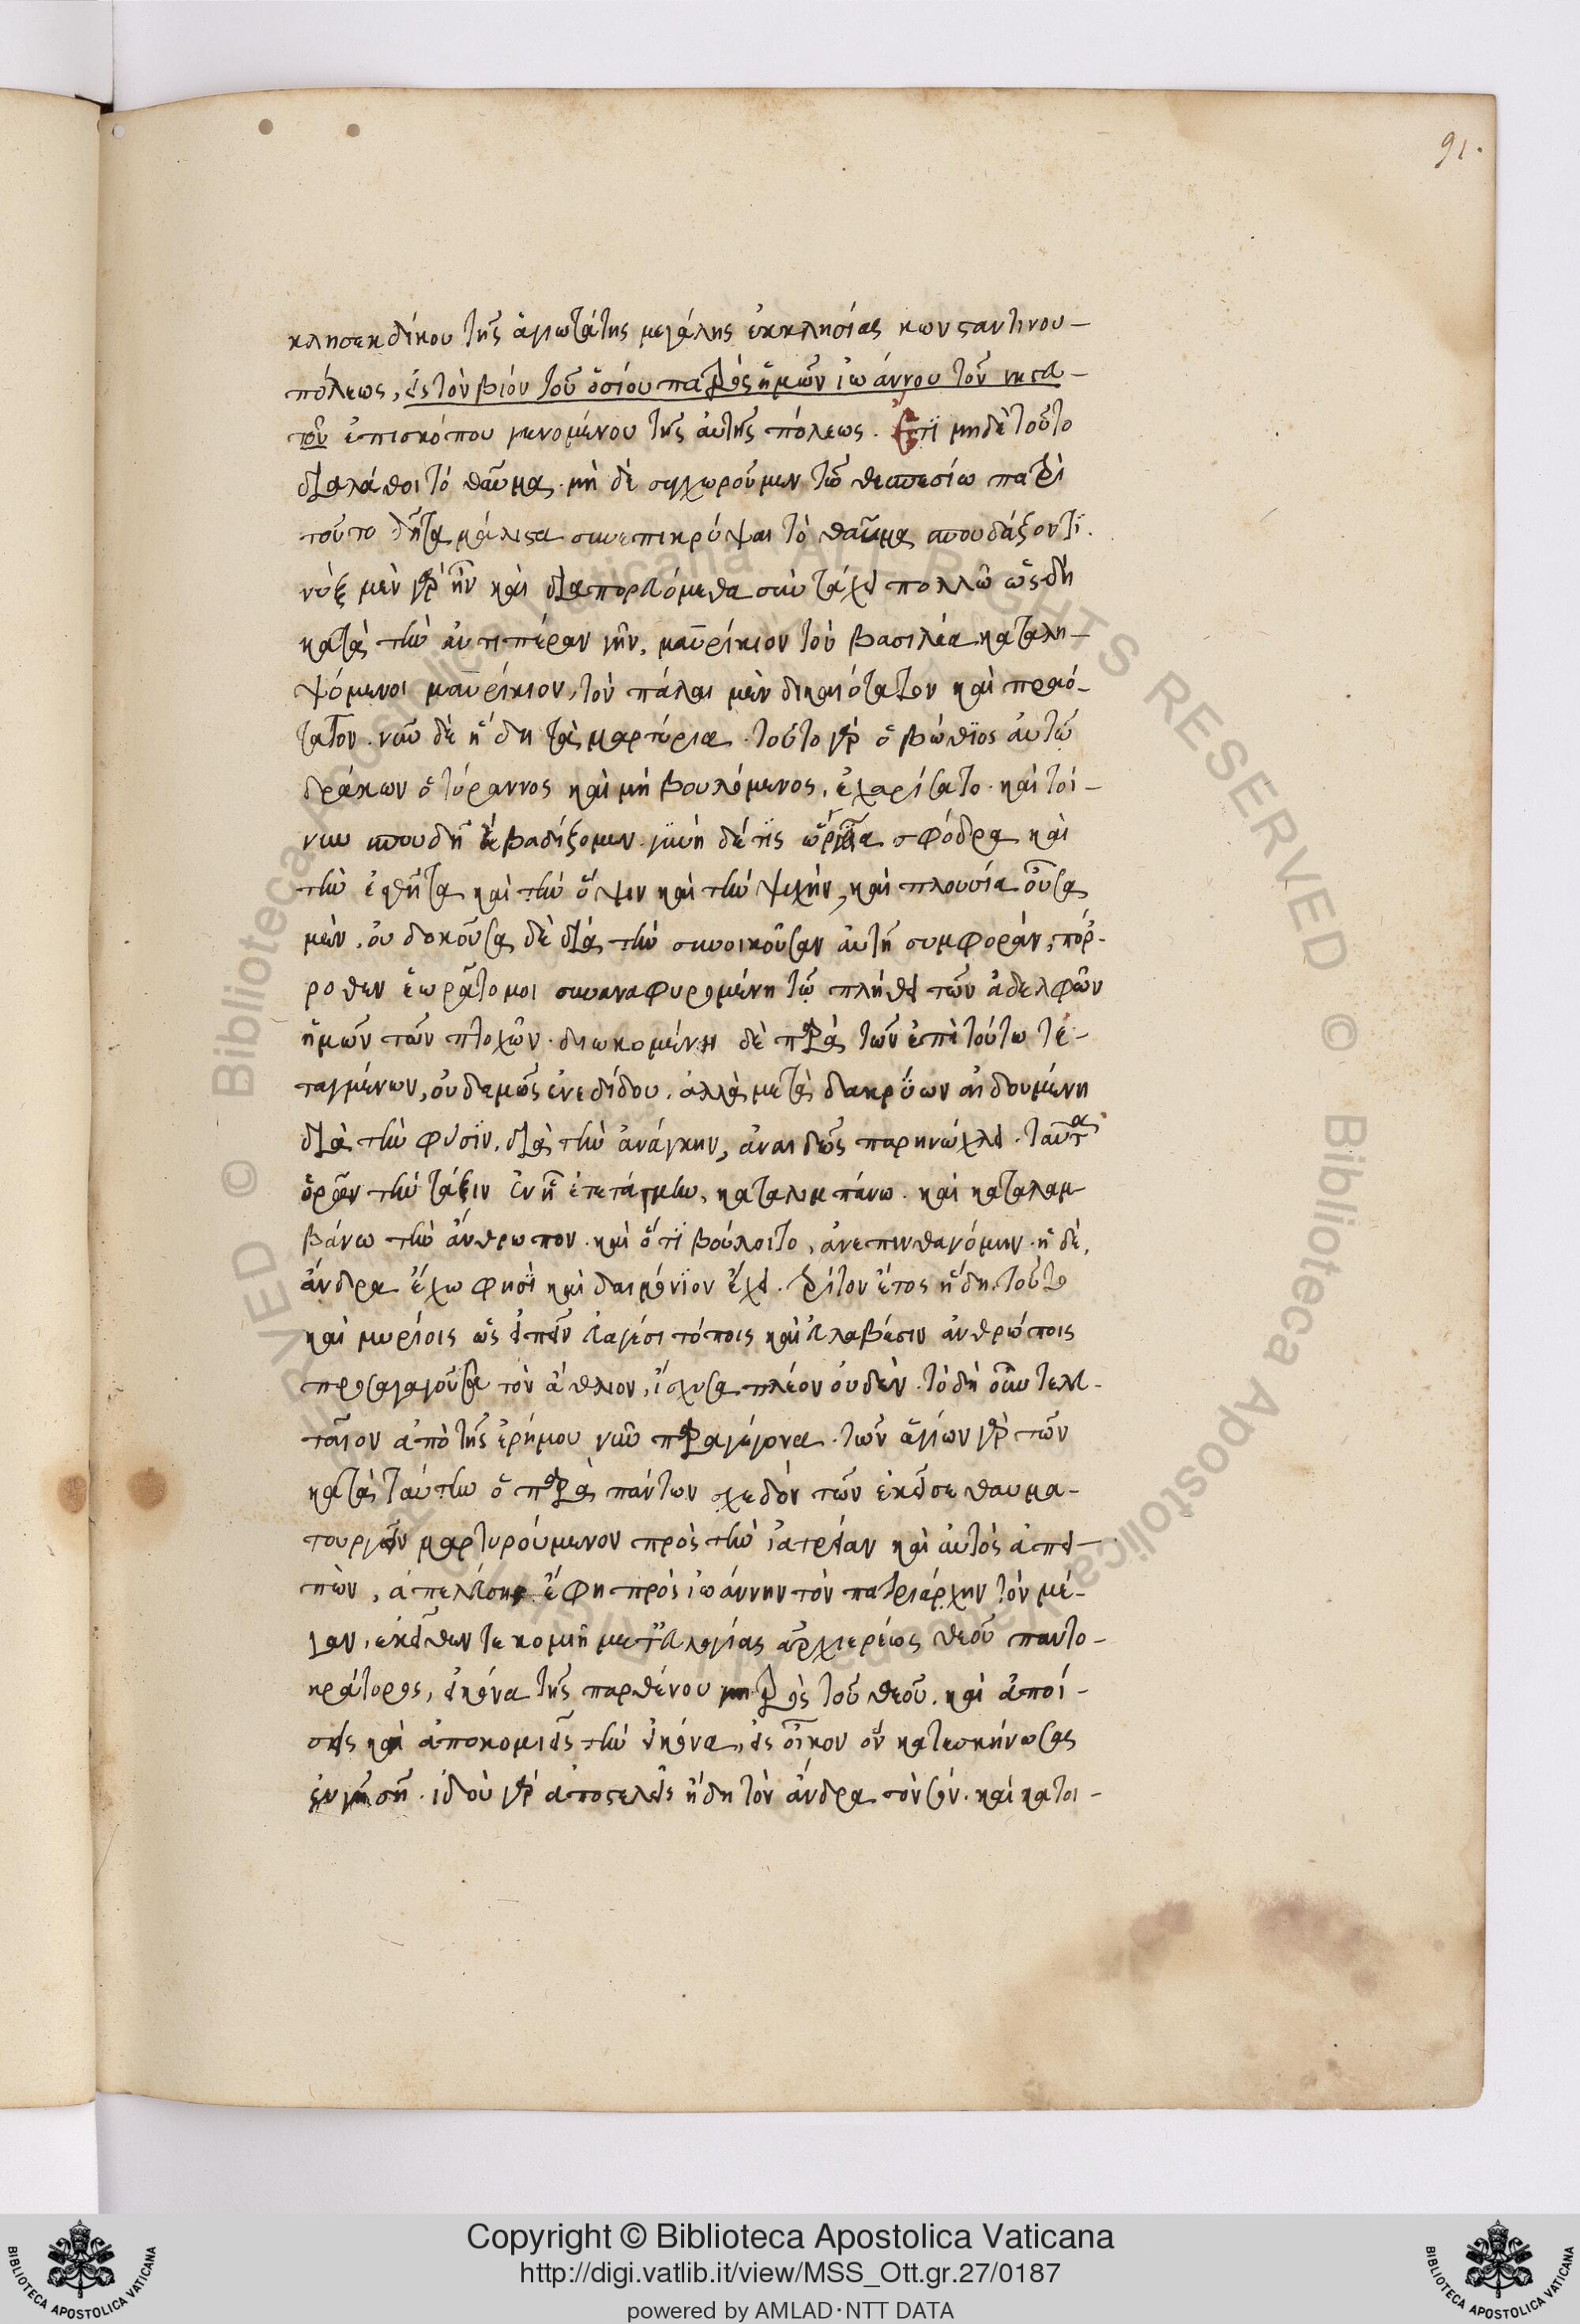 91.
κλησεκδίκου τῆς ἁγιωτάτης μεγάλης ἐκκλησίας κωνσταντινου-
πόλεως, εἰς τὸν βίον τοῦ ὁσίου πατρὸς ἡμῶν ἰωάννου τοῦ νηστευ-
τοῦ ἐπισκόπου γενομένου τῆς αὐτῆς πόλεως. ἔτι μηδὲ τοῦτο
διαλάθοι τὸ θαῦμα. μὴ δὲ συγχωροῦμεν τῶ θεσπεσίω πατρὶ
τοῦτο δῆτα μάλιστα συνεπικρύψαι τὸ θαῦμα σπουδάζοντι.
νὺξ μὲν γὰρ ἦν καὶ διαπορευόμεθα σὺν τάχει πολλῶ ὡς δὴ
κατὰ τὴν ἀντιπέραν γῆν, μαυρίκιον τὸν βασιλέα καταλη-
ψόμενοι μαυρίκιον, τὸν πάλαι μὲν δικαιότατον καὶ πραό-
τατον. νῦν δὲ ἤδη τὰ μαρτύρια. τοῦτο γὰρ ὁ βύθιος αὐτῶ
δράκων ὁ τύραννος καὶ μὴ βουλόμενος, ἐχαρίσατο. καὶ τοί-
νυν σπουδῆ ἐβαδίζομεν. γυνὴ δέ τις σφόδρα καὶ
τὴν ἐσθῆτα καὶ τὴν ὄψιν καὶ τὴν ψυχὴν, καὶ πλουσία οὖσα
μὲν, οὐ δοκοῦσα δὲ διὰ τὴν συνοικοῦσαν αὐτῆ συμφορὰν, πόρ-
ροθεν ἑωρᾶτο μοι συναναφυρομένη τῶ πλήθει τῶν ἀδελφῶν
ἡμῶν τῶν πτοχῶν. διωκομένη δὲ παρὰ τῶν ἐπὶ τούτω τε-
ταγμένων, οὐδαμῶς ἐνεδίδου. ἀλλὰ μετὰ δακρύων αἰδουμένη
διὰ τὴν φύσιν, διὰ τὴν ἀνάγκην, ἀναιδῶς παρηνώχλει. ταῦτα
ὁρῶν τὴν τάξιν ἐν ἧ ἐτετάγμην, καταλιμπάνω. καὶ καταλαμ
βάνω τὴν ἄνθρωπον. καὶ ὅτι βούλοιτο, ἀνεπυνθανόμην. ἡ δὲ,
ἄνδρα ἔχω φησὶ καὶ δαιμόνιον ἔχει. τρίτον ἔτος ἤδη τοῦτο
καὶ μυρίοις ὡς εἰπεῖν εὐαγέσι τόποις καὶ εὐλαβέσιν ἀνθρώποις
προσαγαγοῦσα τὸν ἄθλιον, ἴσχυσα πλέον οὐδέν. τὸ δὴ οὖν τελευ-
ταῖον ἀπὸ τῆς ἐρήμου νῦν παραγέγονα. τῶν ἁγίων γὰρ τῶν
κατὰ ταύτην ὁ παρὰ πάντων σχεδὸν τῶν ἐκεῖσε θαυμα-
τουργεῖν μαρτυρούμενον πρὸς τὴν ἰατρείαν καὶ αὐτὸς ἀπει-
πὼν, ἀπελεύση ἔφη πρὸς ἰωάννην τὸν πατριάρχην τὸν μέ-
γαν. ἐκεῖθεν τε κομιῆ μετ' εὐλογίας ἀρχιερέως θεοῦ παντο-
κράτορος, εἰκόνα τῆς παρθένου μητρὸς τοῦ θεοῦ. καὶ ἀποί-
σεις καὶ ἀποκομιεῖς τὴν εἰκόνα, εἰς οἶκον οὗ κατεσκήνωσας
ἐν γῆ σῆ. ἰδοὺ γὰρ ἀποστελεῖς ἤδη τὸν ἄνδρα τὸν σὸν. καὶ κατοι-
Copyright © Biblioteca Apostolica Vaticana
http://digi.vatlib.it/view/MSS_Ott.gr.27/0187
powered by AMLAD·NTT DATA